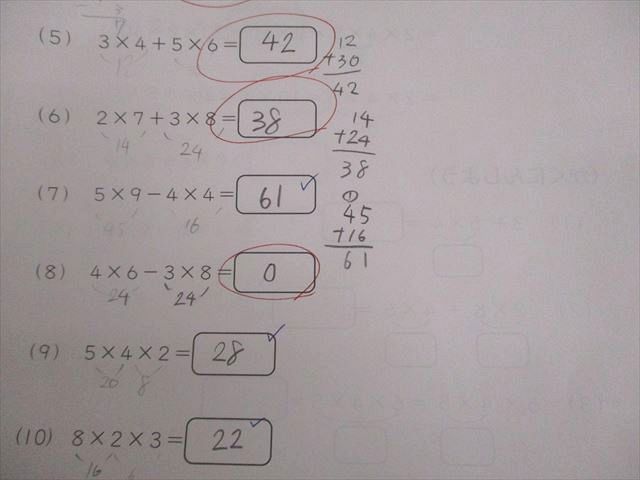 (5) 3×4+5×6= 42
12
12
+30
42
(6) 2×7+3×8= 38
14 24
14
+24
38
(7) 5×9-4×4= 61
45 16
1
45
+16
61
(8) 4×6-3×8= 0
24 24
(9) 5×4×2= 28
20 8
(10) 8×2×3= 22
16 6